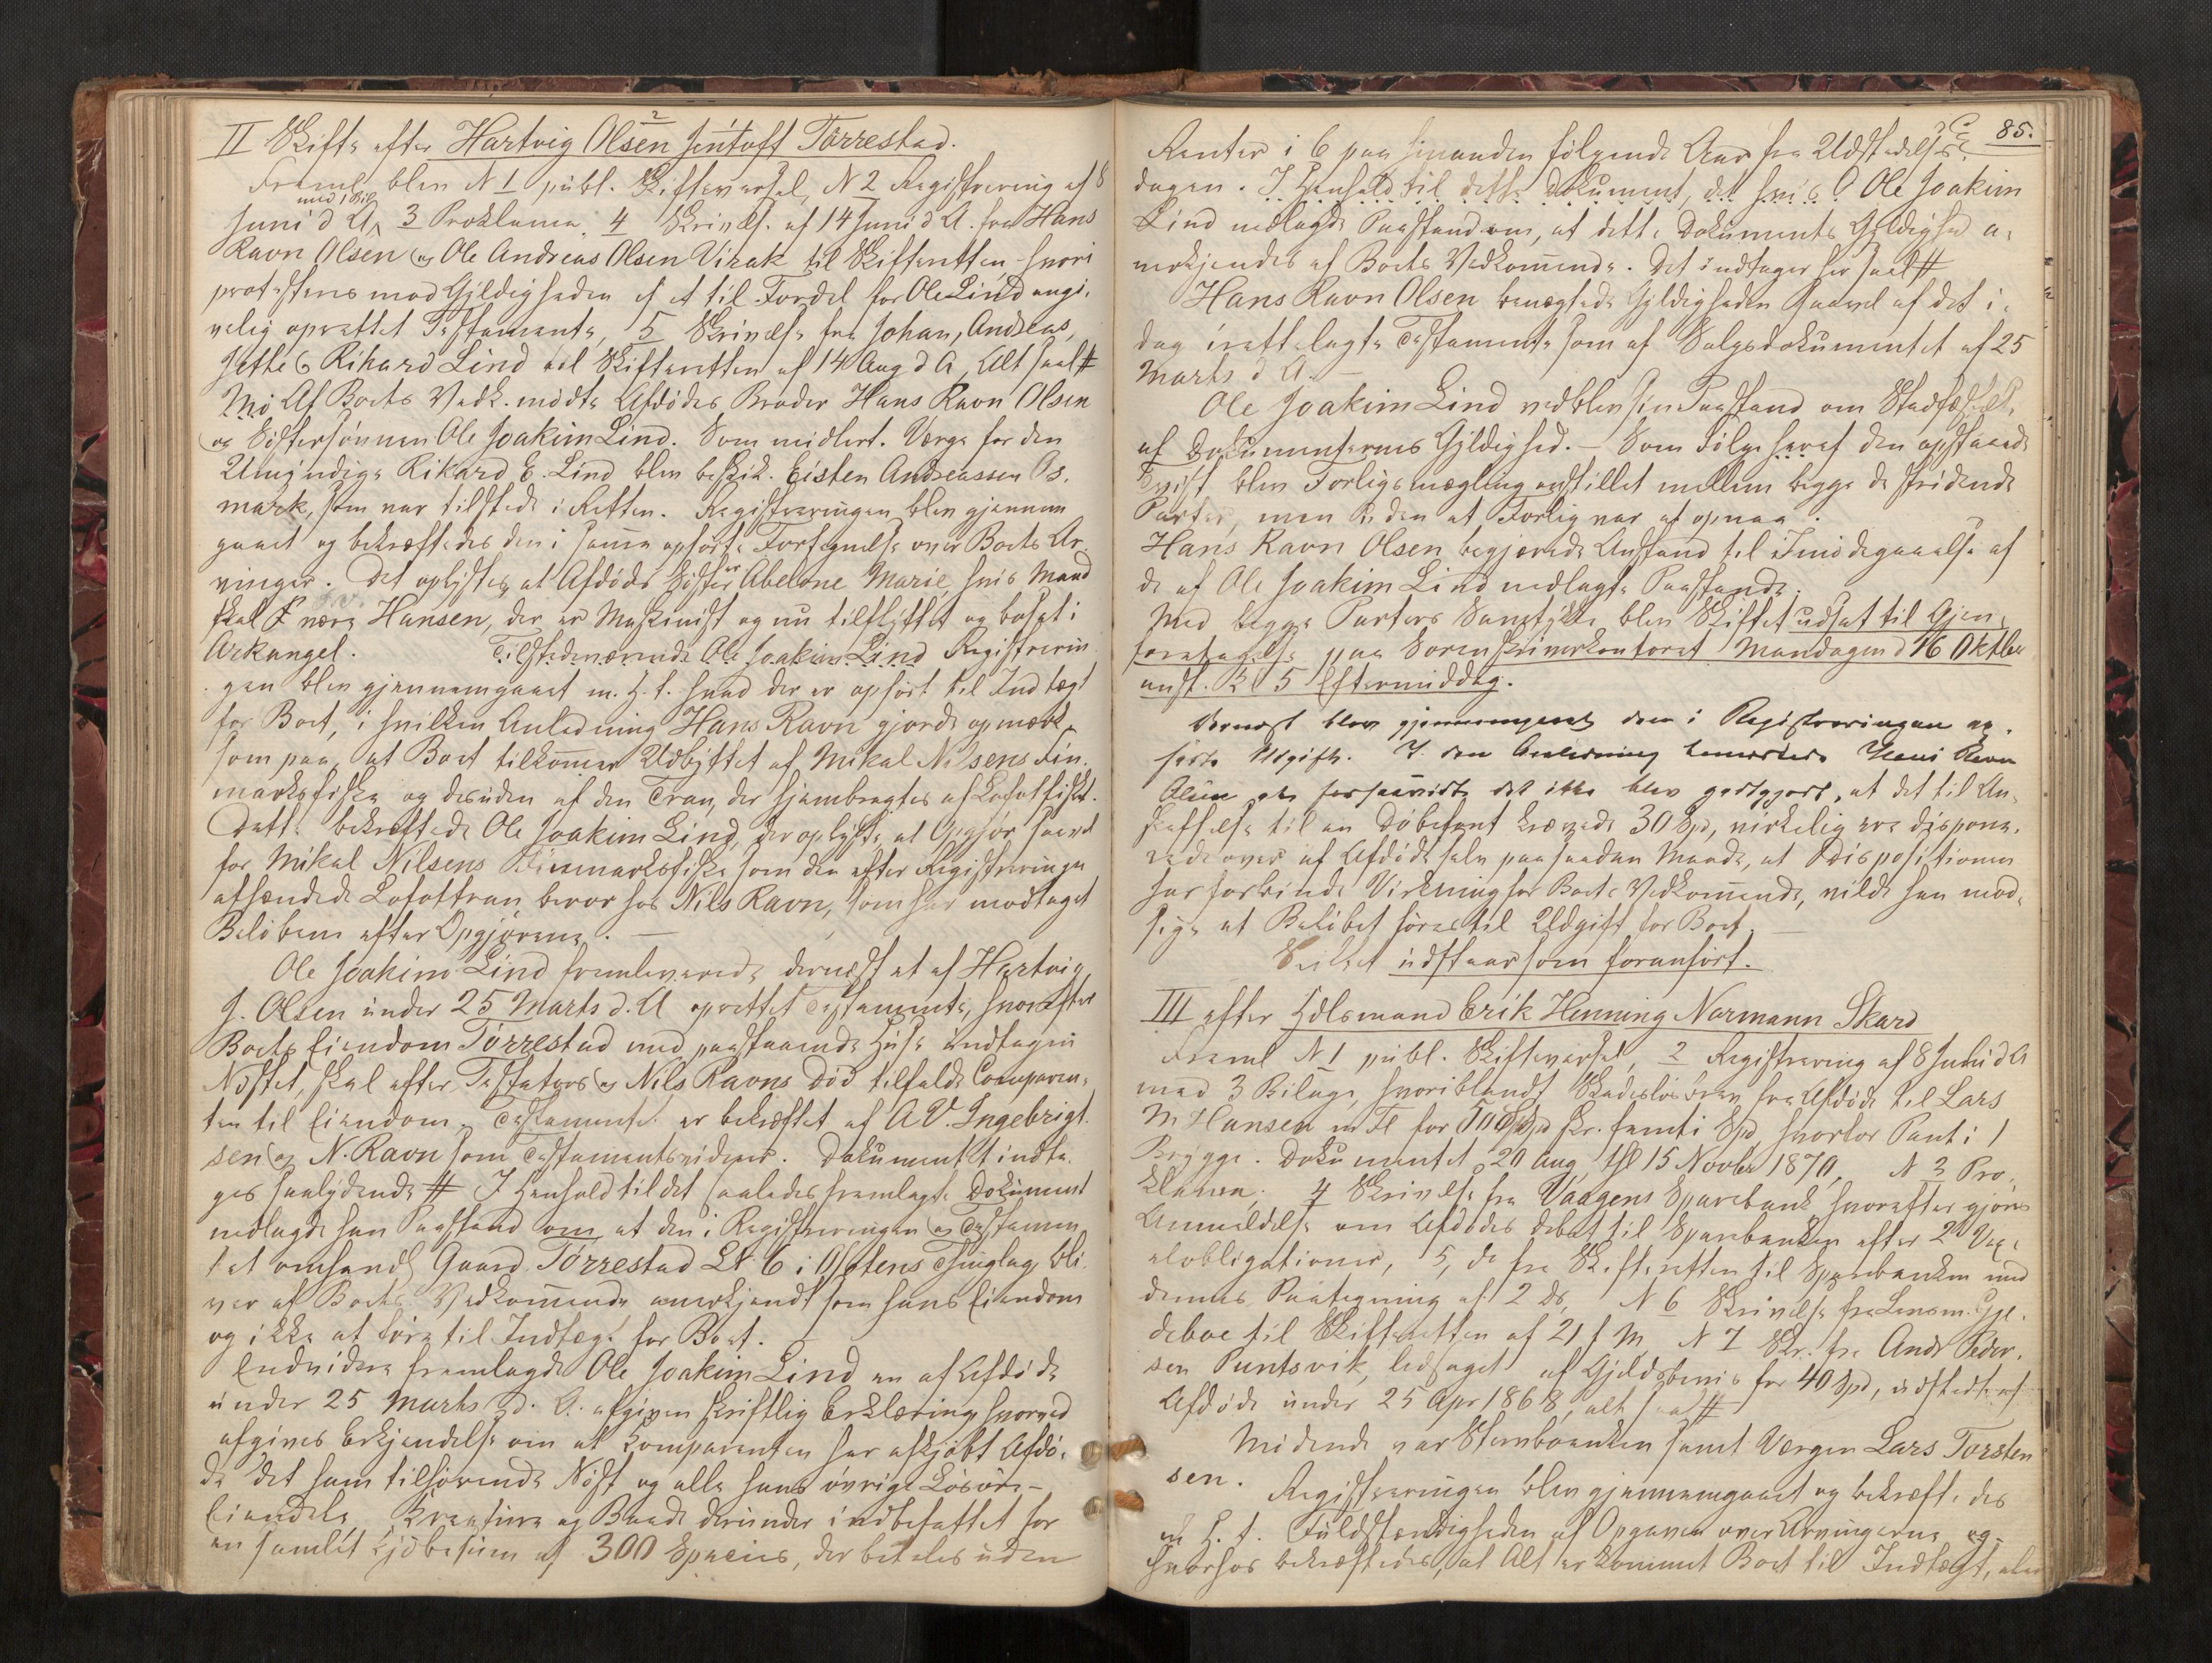 2
II Skifte efter Hartvig Olsen Jentoft Torrestad.
Freml. blev N 1 publ. Skiftevarsel, N 2 Registrering af 8
med 1 Bil
Juni d A, 3 Proklama. 4 Skrivelse af 14 Juni d A. fra Hans
Ravn Olsen og Ole Andreas Olsen Virak til Skifteretten, hvori
protesteres mod Gyldigheden af et til Fordel for Ole Lind angi-
velig oprettet Testamente, 5 Skrivelse fra Johan, Andreas,
Jette & Rikard Lind til Skifteretten af 14 Aug d A, Alt saal #
Mø Af Boets Vedk. mødte Afdødes Broder Hans Ravn Olsen
og Søstersønnen Ole Joakim Lind. Som midlert. Verge for den
Umyndige Rikard E. Lind blev beskik. Eisten Andreassen Os-
mark, som var tilstede i Retten. Registreringen blev gjennem
gaaet og bekræftedes den i samme opførte Fortegnelse over Boets Ar-
vinger. Det oplystes, at Afdødes Søster er Abelone Marie, hvis Mand
skal være Hansen, der er Maskinist og nu tilflyttet og bosat i
Arkangel. Tilstedeværende Ole Joakim Lind Registrerin
gen blev gjennemgaaet m. H. t. hvad der er opført til Indtægt
for Boet, i hvilken Anledning Hans Ravn gjorde opmærk-
som paa, at Boet tilkommer Udbyttet af Mikal Nilsens Fin-
marksfiske og desuden af den Tran, der hjembragtes af Lofotfisket.
Dette bekræftede Ole Joakim Lind, der oplyste, at Opgjør saavel
for Mikal Nilsens Finmarksfiske som den efter Registreringen
afsendede Lofottran beror hos Nils Ravn, som har modtaget
Beløbene efter Opgjørene. —
Ole Joakim Lind fremleverede dernæst et af Hartvig
J. Olsen under 25 Marts d. A oprettet Testamente, hvorefter
Boets Eiendom Torrestad med paastaaende Huse undtagen
Nøstet, skal efter Testators og Nils Ravns Død tilfalde Comparen-
ten til Eiendom. Testamentet er bekræftet af A V. Ingebrigt-
sen og N. Ravn som Testamentsvidner. Dokumentet indta-
ges saalydende # I Henhold til det saaledes fremlagte Dokument
nedlagde han Paastand om, at den i Registreringen og Testamen
tet omhandl Gaard Torrestad Lt 6 i Ofotens Thinglag bli-
ver af Boets Vedkommende anerkjendt som hans Eiendom
og ikke at føre til Indtægt for Boet. —
Endvidere fremlagde Ole Joakim Lind en af Afdøde
under 25 Marts d. A. afgiven skriftlig Erklæring hvorved
afgives Erkjendelse om at Komparenten har afkjøbt Afdø-
de det ham tilhørende Nøst og alle hans øvrige Løsøre-
Eiendele, Kreature og Baade derunder indbefattet for
en samlet Kjøbesum af 300 Species, der betales uden
85.
Renter i 6 paa hinanden følgende Aar fra Udstedelses-
dagen. I Henhold til dette Dokument, det Ole Joakim
Lind nedlagde Paastand om, at dette Dokuments Gyldighed a-
nerkjendes af Boets Vedkommende. Det indtages her saal #
Hans Ravn Olsen benægtede Gyldigheden saavel af det i-
dag irettelagte Testamente som af Salgsdokumentet af 25
Marts d A. —
Ole Joakim Lind vedblev sin Paastand om Stadfæstelse
af Dokumenternes Gyldighed. — Som Følge heraf den opstaaede
Tvist blev Forligsmægling anstillet mellem begge de stridende
Parter, men uden at Forlig var at opnaa.
Hans Ravn Olsen begjærede Anstand til Imødegaaelse af
de af Ole Joakim Lind nedlagte Paastande.
Med begge Parters Samtykke blev Skiftet udsat til Gjen-
foretagelse paa Sorenskriverkontoret Mandagen d 16 Oktbr
anst. Kl 5 Eftermiddag.
Dernæst blev gjennemgaaet den i Registreringen an-
førte Udgift. I den Anledning bemærkede Hans Ravn
Olsen at forsaavidt det ikke blev godtgjort, at det til An-
skaffelse til en Døbefont krævede 30 Spd, virkelig var dispone-
rede over af Afdøde selv paa saadan Maade, at Dispositionen
har forbinde Virkning for Boets Vedkommende, vilde han mod-
sige at Beløbet føres til Udgift for Boet. —
Skiftet udstaar som foranført.
III efter Hdlsmand Erik Henning Normann Skard
Freml N 1 publ. Skiftevarsel, 2 Registrering af 8 Juni d A
med 3 Bilage, hvoriblandt Skadesløsbrev fra Afdøde til Lars
M Hansen m Fl for 50 Spd skr. femti Spd, hvorfor Pant i 1
Brygge. Dokumentet 20 Aug, thl 15 Novbr 1870, N 3 Pro-
klama. 4 Skrivelse fra Vaagens Sparebank hvorefter gjøres
Anmeldelse om Afdødes Debet til Sparebanken efter 2 Vex-
elobligationer, 5, do fra Skifteretten til Sparebanken med
dennes Paategning af 2 ds, N 6 Skrivelse fra Lensm. Gjel-
deboe til Skifteretten af 21 f M, N 7 Skr. fra Andr Peder-
sen Puntsvik, ledsaget af Gjeldsbevis for 40 Spd, udstedt af
Afdøde under 25 Apr 1868, alt saal #
Mødende var Stervboenken samt Vergen Lars Torsten
sen. Registreringen blev gjennemgaaet og bekræftedes
m H. t. Fuldstændigheden af Opgaven over Arvingerne og
hvorhos bekræftedes, at Alt er kommet Boet til Indtægt, eller